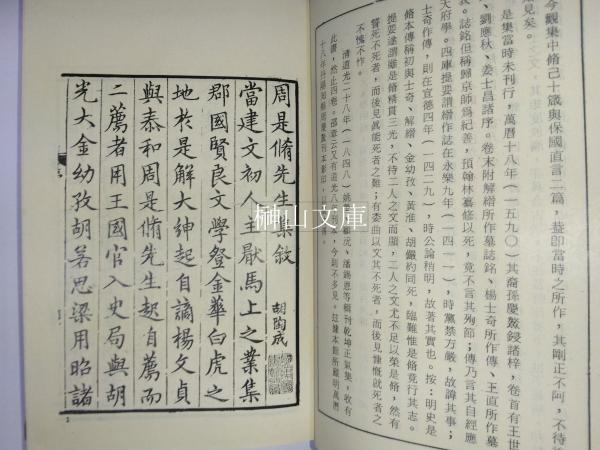 今觀集中脩己十箴與保國直言二篇，葢卽當時之所作，其剛正不阿，不待
見矣。
是集當時未刊行，萬曆十八年（一五九〇）其裔孫慶
鋟諸梓，卷首有王世
、劉應秋、姜士昌諸序。卷末附解縉所作墓誌銘、楊士奇所作傳、王直所作墓
我。誌銘但稱歸京師爲紀善，預翰林纂修以死，竟不言其殉節；傳乃言其自經應
天府學。四庫提要謂縉作誌在永樂九年（一四一一），時黨禁方嚴，故諱其事；
士奇作傳，則在宣德四年（一四二九），時公論稍明，故著其實也。按：明史是
脩本傳稱初與士奇、解縉、金幼孜、黃淮、胡儼約同死，臨難惟是脩竟行其志。
提要遂謂雖是脩精貫三光，不待二人之文而顯，二人之文尤不足以榮是脩，然有
誓死不死者，而後見眞能死者之難；有委曲以文其不死者，而後見慷慨就死者之
不愧不怍。
清道光二十八年（一八四八）姚
潘錫恩等輯刊乾坤正氣集，收有
此書，然止四卷。
云又有道光八年
本，今則不多見。玆據本館所藏明萬曆
十八年
刊本影印，
周是脩先生集敘
胡陶成
當建文初人主厭馬上之業集
郡國賢良文學登金華白虎之
地於是解大紳起自謫楊文貞
與泰和周是脩先生起自薦而
二薦者用王國官入史局與胡
光大金幼孜胡若思梁用昭諸
榊山文庫